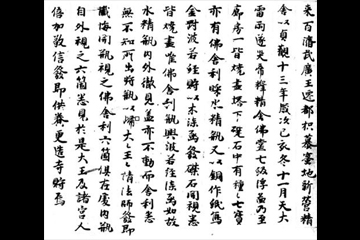 百濟武廣王遷都枳慕蜜地新營精
舍以貞觀十三年歲次己亥冬十一月天大
雷雨遂災帝釋精舍佛堂七級浮圖乃至
廊房一皆燒盡塔下礎石中有種々七寶
亦有佛舍利睬水精瓶又以銅作紙寫
金剛波若經貯以木漆函發礎石開視悉
皆燒盡唯佛舍利瓶與波若經漆函如故
水精瓶內外徹見盖亦不動而舍利悉
無不知所出將瓶以歸大々王々請法師發即
懺悔開瓶視之佛舍利六箇俱在處內瓶
自外視之六箇悉見於是大王及諸宮人
倍加敬信發即供養更造寺貯焉